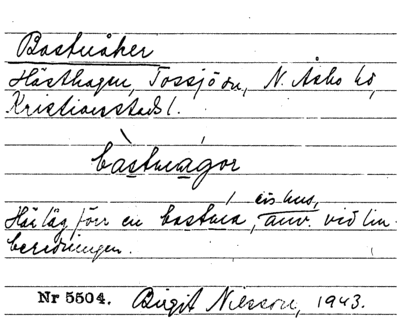 Bastuåker
Hästhagen, Tossjö sn, N. Åsbo hd,
Kristianstads l.
bàstuágor
eis hus,
Här låg förr en bastua, anv. vid lin-
beredningen.
Nr 5504. Birgit Nilsson, 1943.